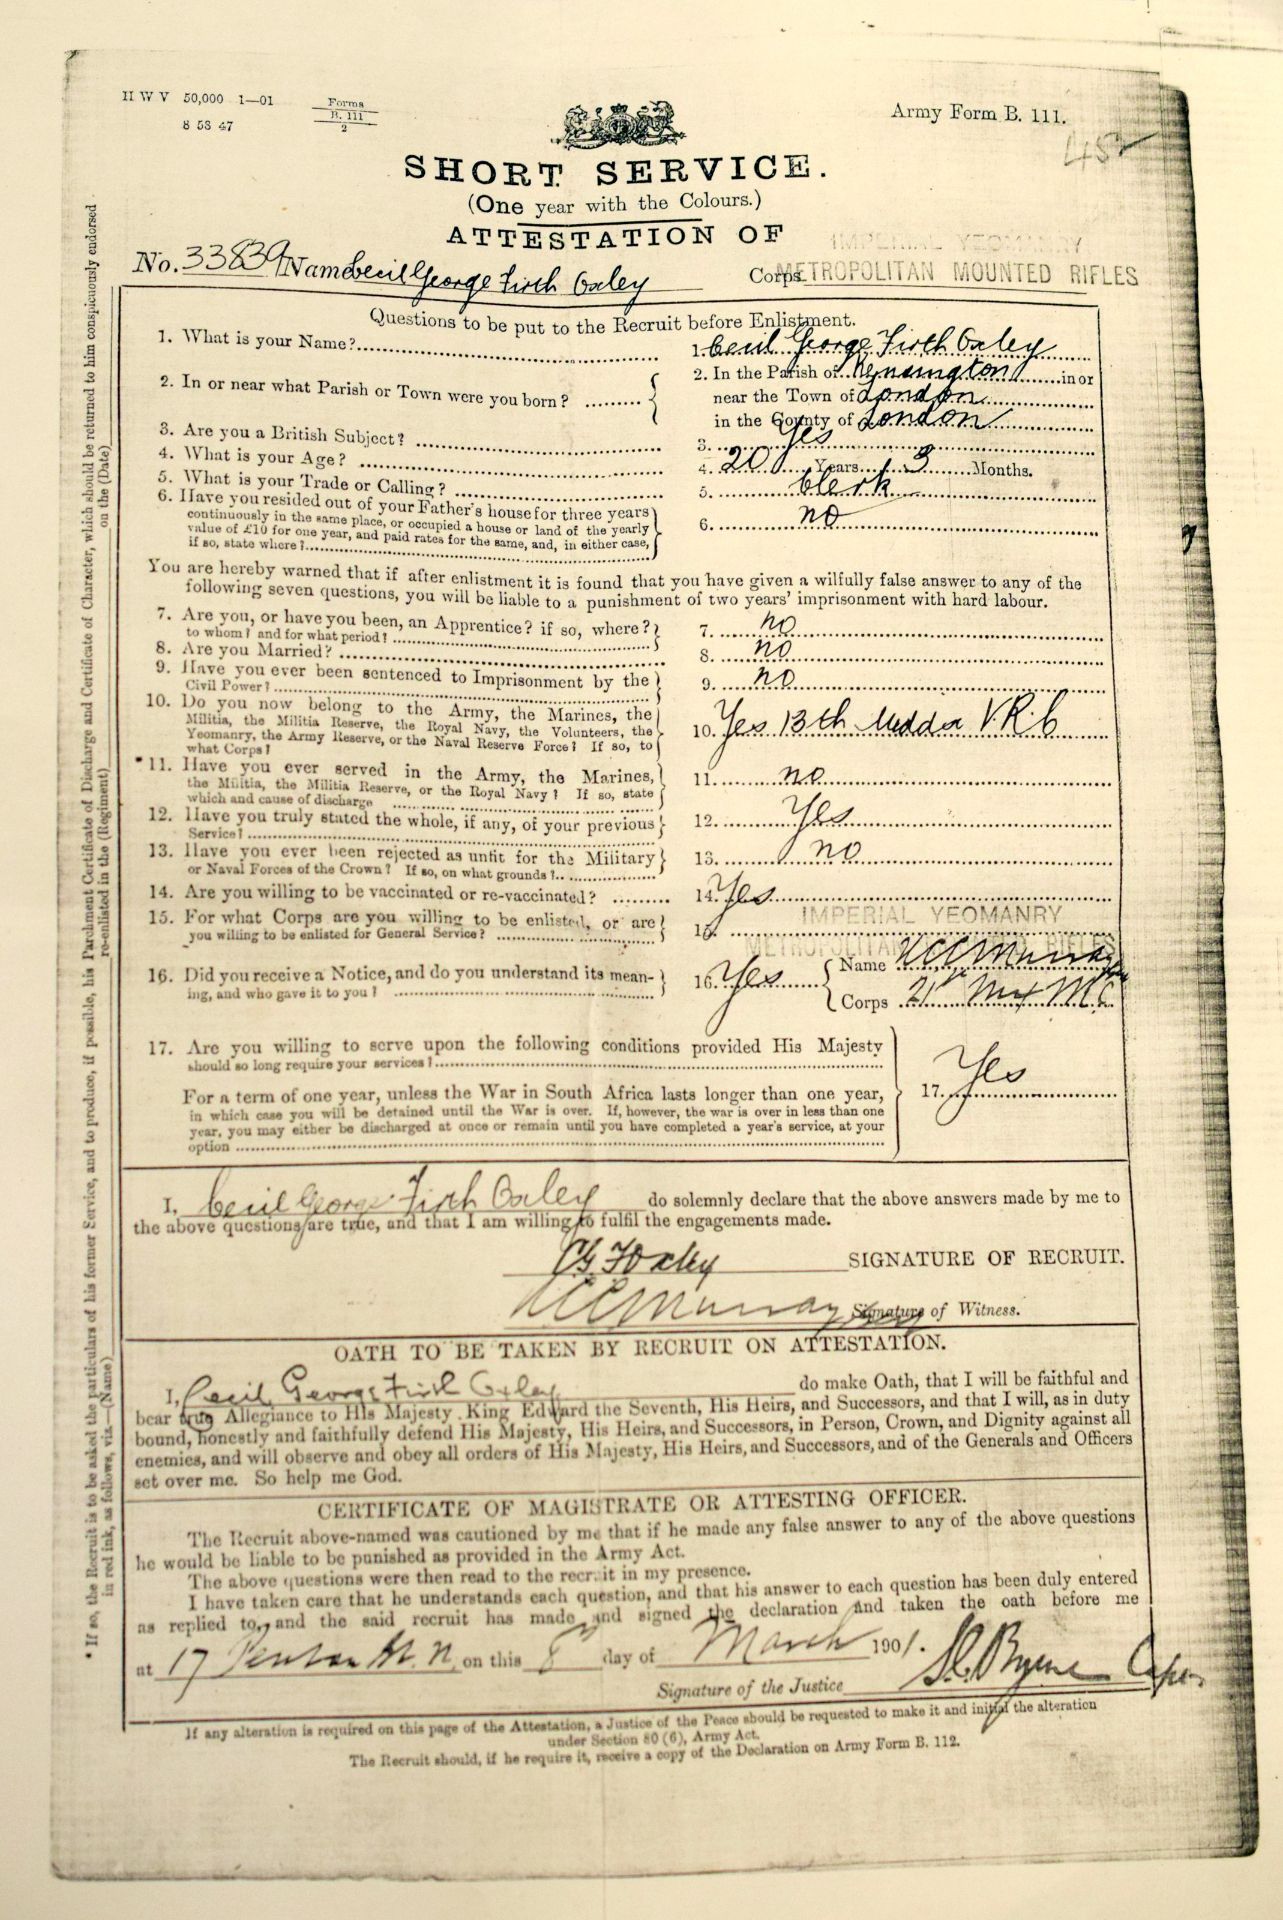 H W V 50,000 1—01
8 53 47
Forms
B. 111
2
Army Form B. 111.
452
SHORT SERVICE.
(One year with the Colours.)
ATTESTATION OF
No. 33839 Name Cecil George Firth Oxley Corps IMPERIAL YEOMANRY
METROPOLITAN MOUNTED RIFLES
Questions to be put to the Recruit before Enlistment.
1. What is your Name? 1. Cecil George Firth Oxley
2. In or near what Parish or Town were you born? 2. In the Parish of Kensington in or
near the Town of London
in the County of London
3. Are you a British Subject? 3. Yes
4. What is your Age? 4. 20 Years 3 Months.
5. What is your Trade or Calling? 5. Clerk
6. Have you resided out of your Father's house for three years
continuously in the same place, or occupied a house or land of the yearly
value of £10 for one year, and paid rates for the same, and, in either case,
if so, state where? 6. no
You are hereby warned that if after enlistment it is found that you have given a wilfully false answer to any of the
following seven questions, you will be liable to a punishment of two years' imprisonment with hard labour.
7. Are you, or have you been, an Apprentice? if so, where?
to whom? and for what period? 7. no
8. Are you Married? 8. no
9. Have you ever been sentenced to Imprisonment by the
Civil Power? 9. no
10. Do you now belong to the Army, the Marines, the
Militia, the Militia Reserve, the Royal Navy, the Volunteers, the
Yeomanry, the Army Reserve, or the Naval Reserve Force? If so, to
what Corps? 10. Yes 13th Middx V.R.C
*11. Have you ever served in the Army, the Marines,
the Militia, the Militia Reserve, or the Royal Navy? If so, state
which and cause of discharge 11. no
12. Have you truly stated the whole, if any, of your previous
Service? 12. Yes
13. Have you ever been rejected as unfit for the Military
or Naval Forces of the Crown? If so, on what grounds? 13. no
14. Are you willing to be vaccinated or re-vaccinated? 14. Yes
15. For what Corps are you willing to be enlisted, or are
you willing to be enlisted for General Service? 15. IMPERIAL YEOMANRY
METROPOLITAN MOUNTED RIFLES
16. Did you receive a Notice, and do you understand its mean-
ing, and who gave it to you? 16. Yes Name Murray
Corps 21st
17. Are you willing to serve upon the following conditions provided His Majesty
should so long require your services?
For a term of one year, unless the War in South Africa lasts longer than one year,
in which case you will be detained until the War is over. If, however, the war is over in less than one
year, you may either be discharged at once or remain until you have completed a year's service, at your
option 17. Yes
I, Cecil George Firth Oxley do solemnly declare that the above answers made by me to
the above questions are true, and that I am willing to fulfil the engagements made.
C.G.F Oxley SIGNATURE OF RECRUIT.
Murray Signature of Witness.
OATH TO BE TAKEN BY RECRUIT ON ATTESTATION.
I, Cecil George Firth Oxley do make Oath, that I will be faithful and
bear true Allegiance to His Majesty King Edward the Seventh, His Heirs, and Successors, and that I will, as in duty
bound, honestly and faithfully defend His Majesty, His Heirs, and Successors, in Person, Crown, and Dignity against all
enemies, and will observe and obey all orders of His Majesty, His Heirs, and Successors, and of the Generals and Officers
set over me. So help me God.
CERTIFICATE OF MAGISTRATE OR ATTESTING OFFICER.
The Recruit above-named was cautioned by me that if he made any false answer to any of the above questions
he would be liable to be punished as provided in the Army Act.
The above questions were then read to the recruit in my presence.
I have taken care that he understands each question, and that his answer to each question has been duly entered
as replied to, and the said recruit has made and signed the declaration and taken the oath before me
at 17 Penton St. N. on this 8th day of March 1901.
Signature of the Justice Byrne
If any alteration is required on this page of the Attestation, a Justice of the Peace should be requested to make it and initial the alteration
under Section 80 (6), Army Act.
The Recruit should, if he require it, receive a copy of the Declaration on Army Form B. 112.
* If so, the Recruit is to be asked the particulars of his former Service, and to produce, if possible, his Parchment Certificate of Discharge and Certificate of Character, which should be returned to him conspicuously endorsed
in red ink, as follows, viz.—(Name) re-enlisted in the (Regiment) on the (Date)